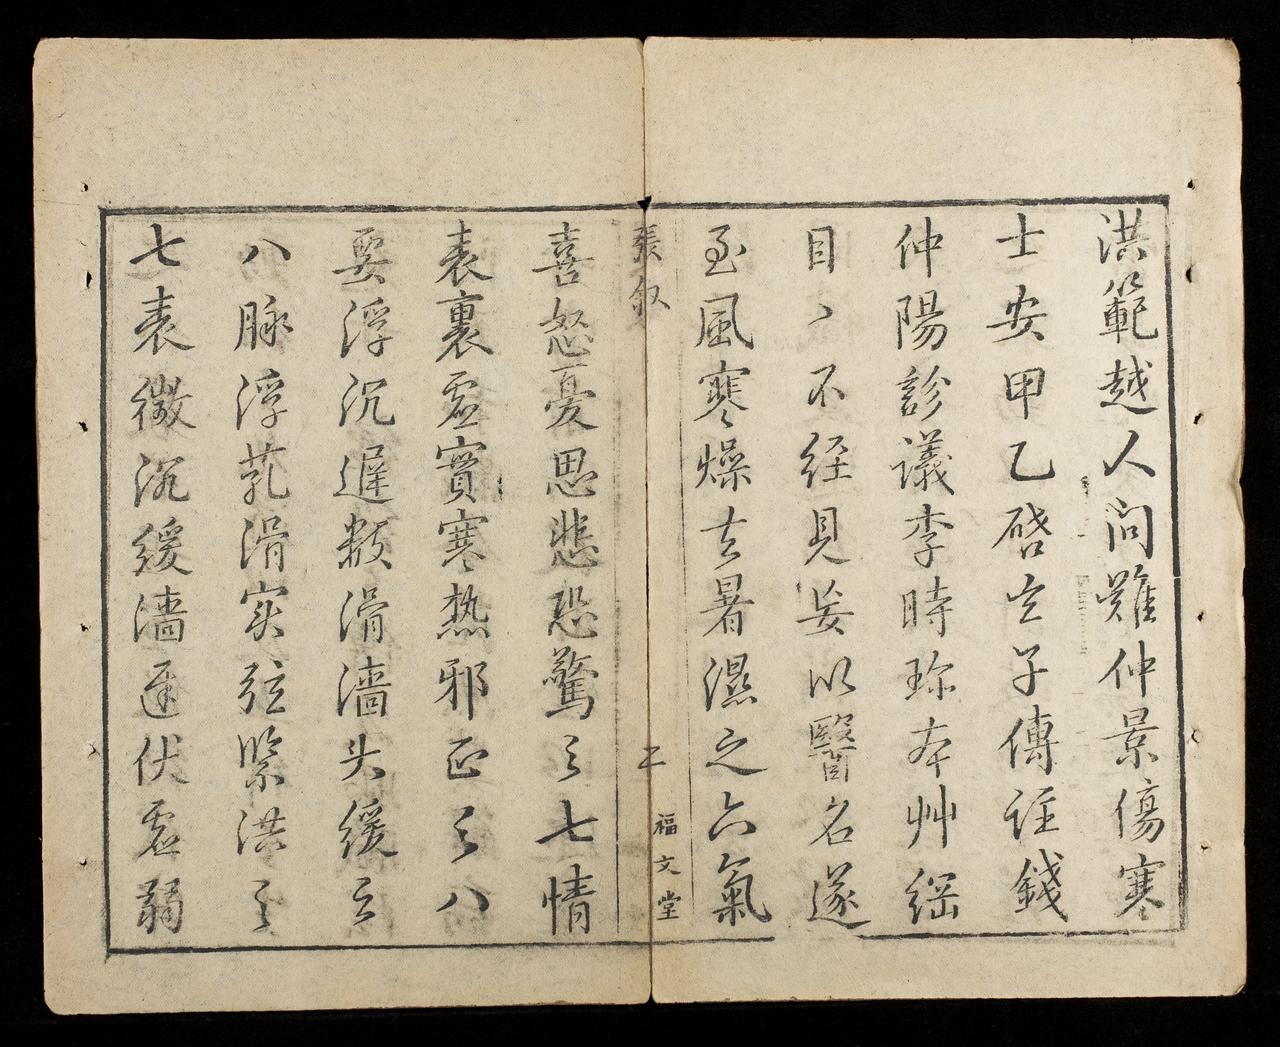 洪範越人問難仲景傷寒
士安甲乙啓玄子傳註錢
仲陽診議李時珍本艸綱
目〻不經見妄以醫名遂
至風寒燥火暑濕之六氣
張叙
二
福文堂
喜怒憂思悲恐驚之七情
表裏虛實寒熱邪正之八
要浮沉遲數滑濇大緩之
八脉浮芤滑实弦緊洪之
七表微沉緩濇遲伏虛弱